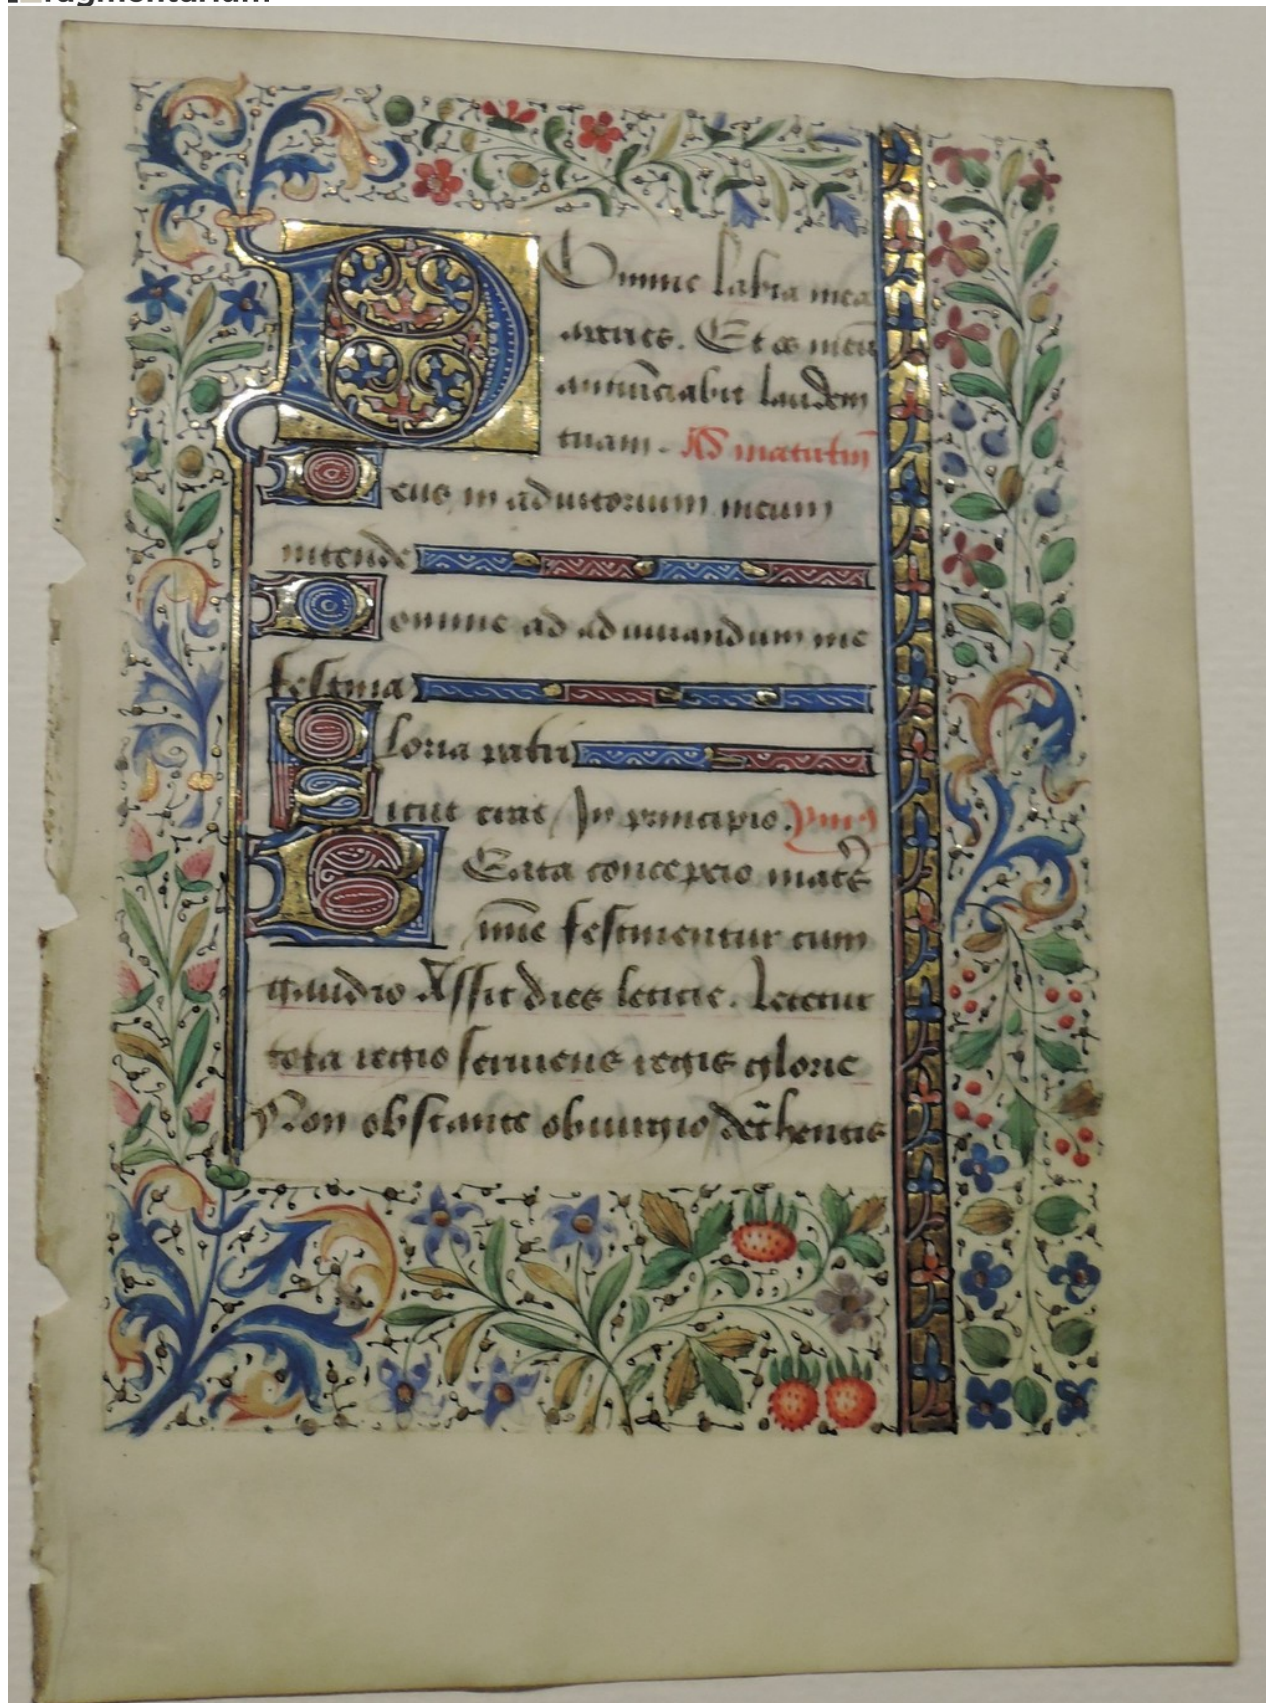 Fragmentarium
Domine labia mea
aperies. Et os meū
annūciabit laudem
tuam. Ad matutin̄
Deus in adiutorium meum
intende
Domine ad adiuuandum me
festina
Gloria patri
Sicut erat In principio.
Beata concepcio
festinentur cum
gaudio Assit dies leticie. Letetur
tota regio seruiens regis glorie
Non obstante obiurgio